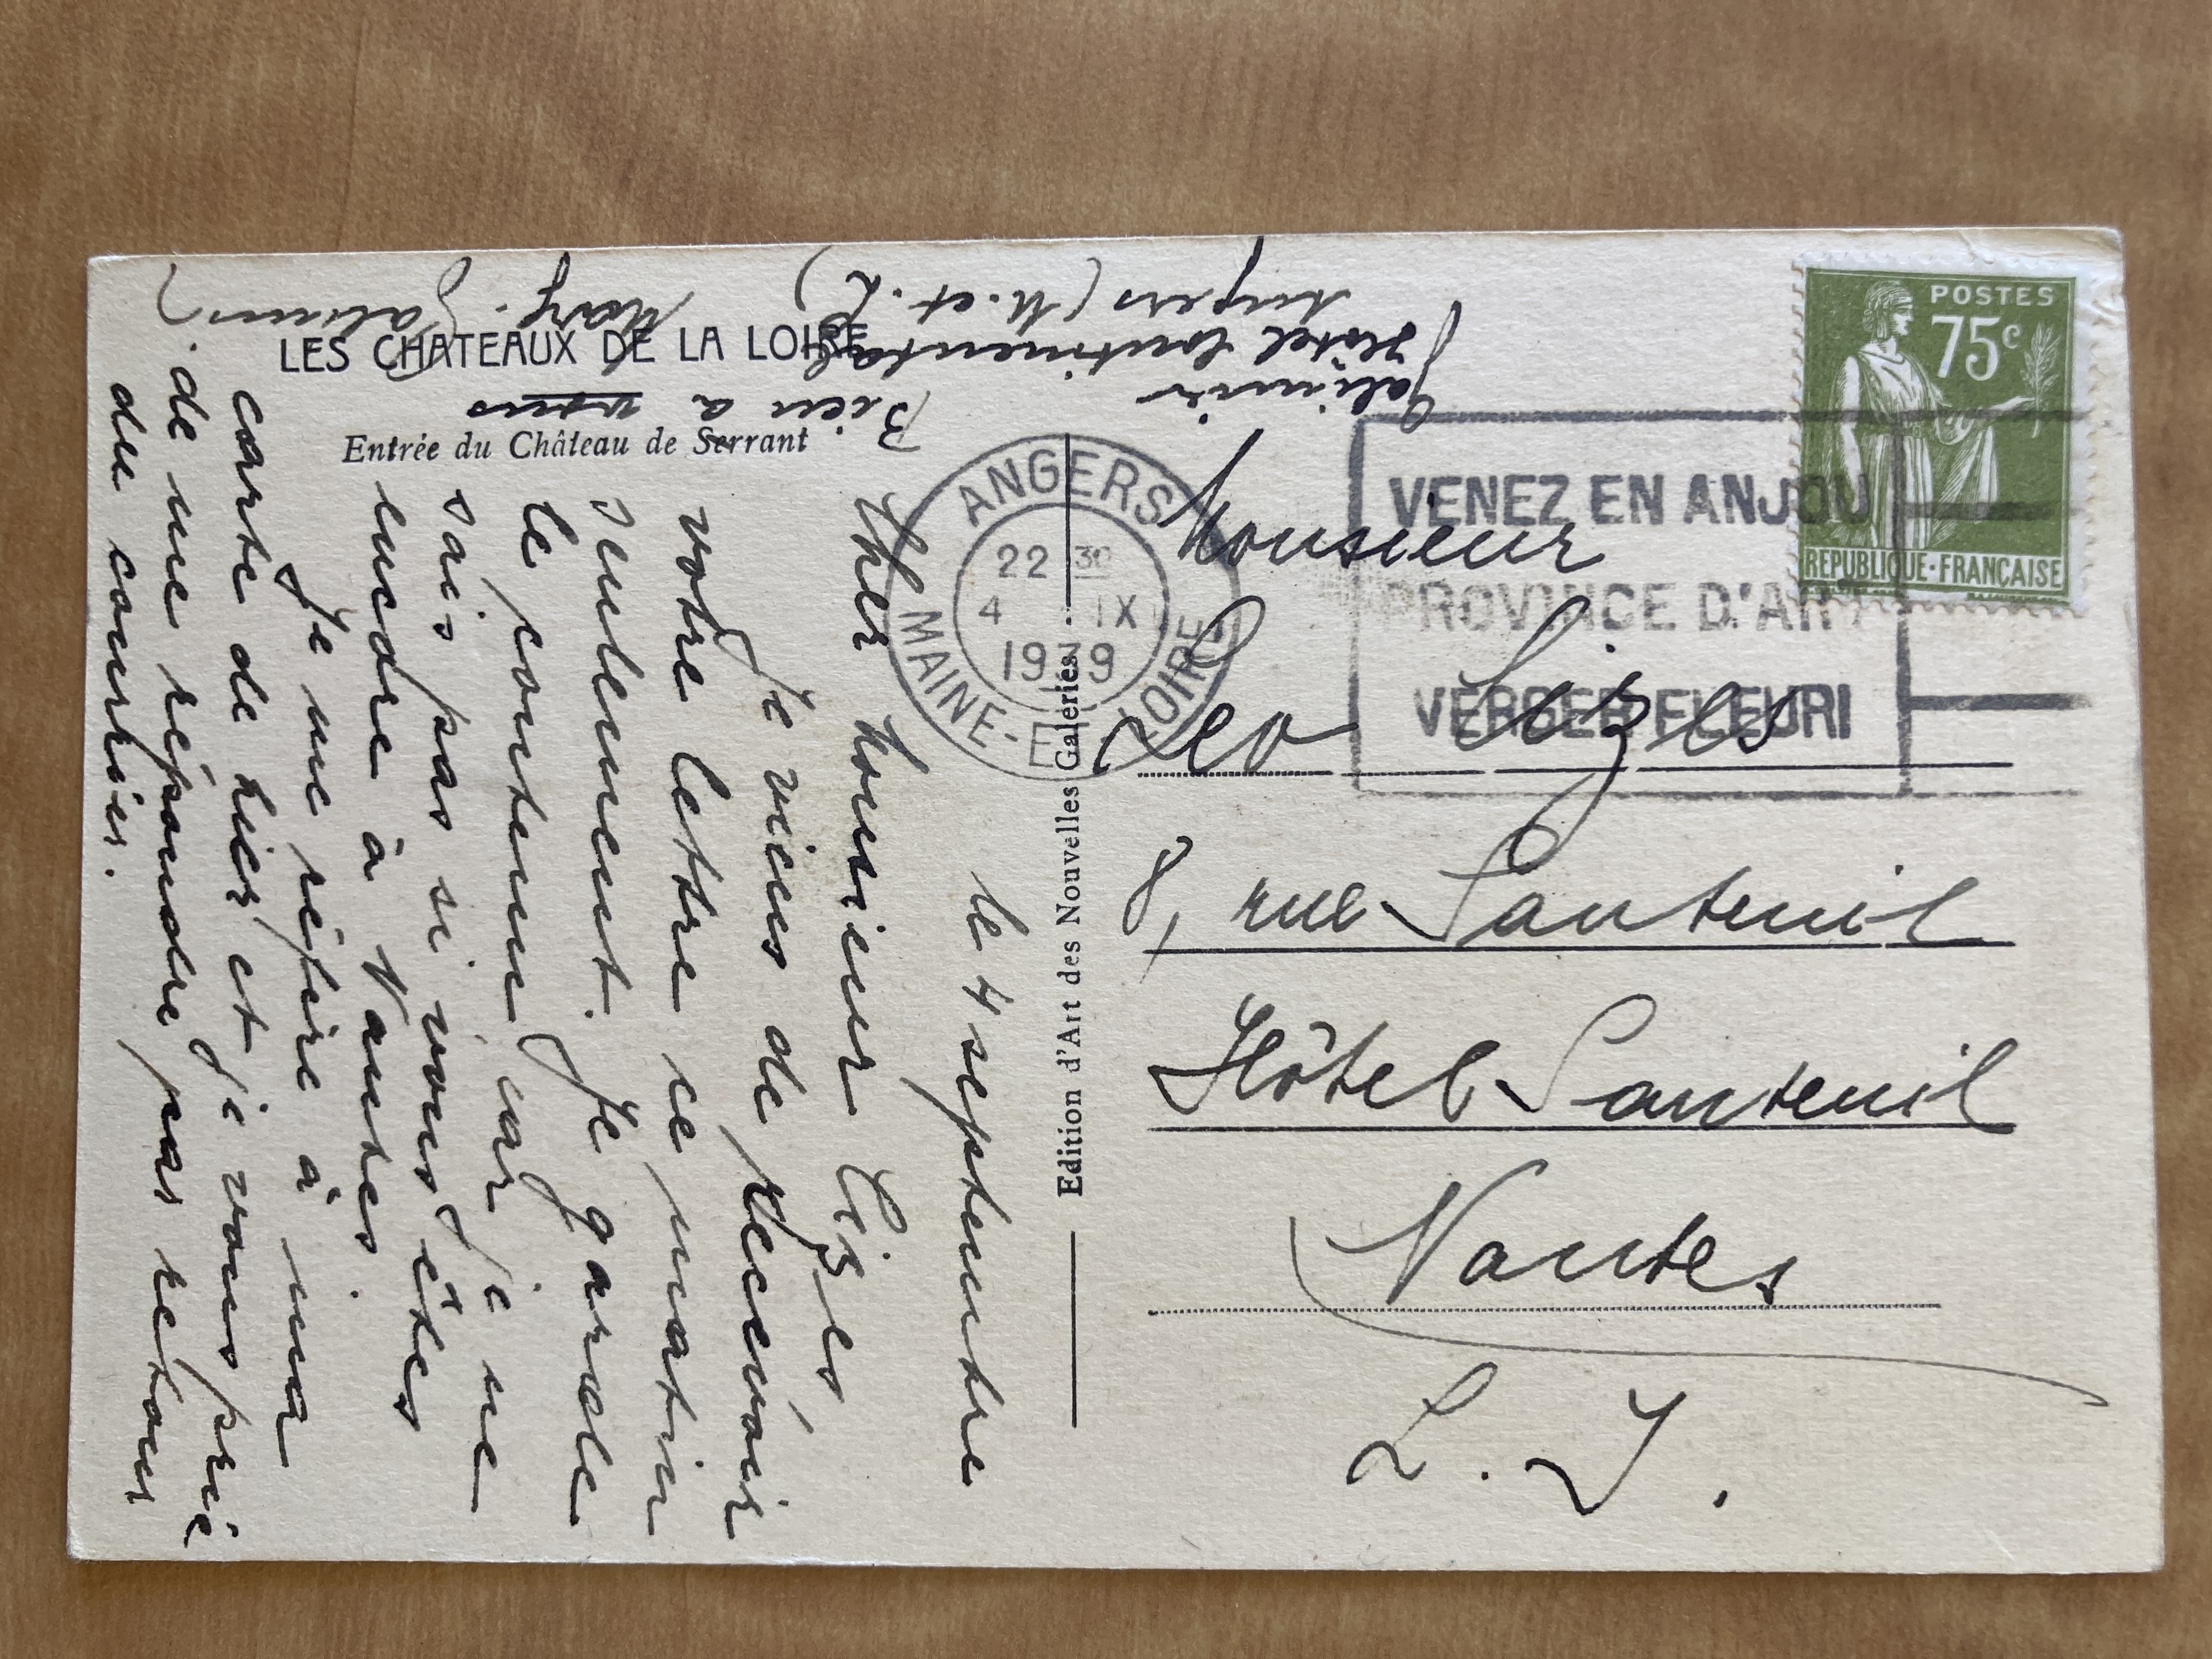 LES CHATEAUX DE LA LOIRE
Entrée du Château de Serrant
le 4 septembre
Cher Monsieur Lizes
Je viens de recevoir
votre lettre ce matin
seulement. Je garde
le contenu, car je ne
sais pas si vous êtes
encore à Nantes.
Je me réfère à ma
carte de hier et je vous prie
de me répondre par retour
du courrier.
Bien à vous
Galimir
Hôtel Continental
Angers (M. et. L)
Edition d'Art des Nouvelles Galeries.
ANGERS
22 30
4 IX
1939
MAINE-ET-LOIRE
VENEZ EN ANJOU
PROVINCE D'ART
VERGER FLEURI
POSTES
75c
REPUBLIQUE·FRANÇAISE
Monsieur
Leo Lizes
8, rue Santeuil
Hôtel Santeuil
Nantes
L. I.